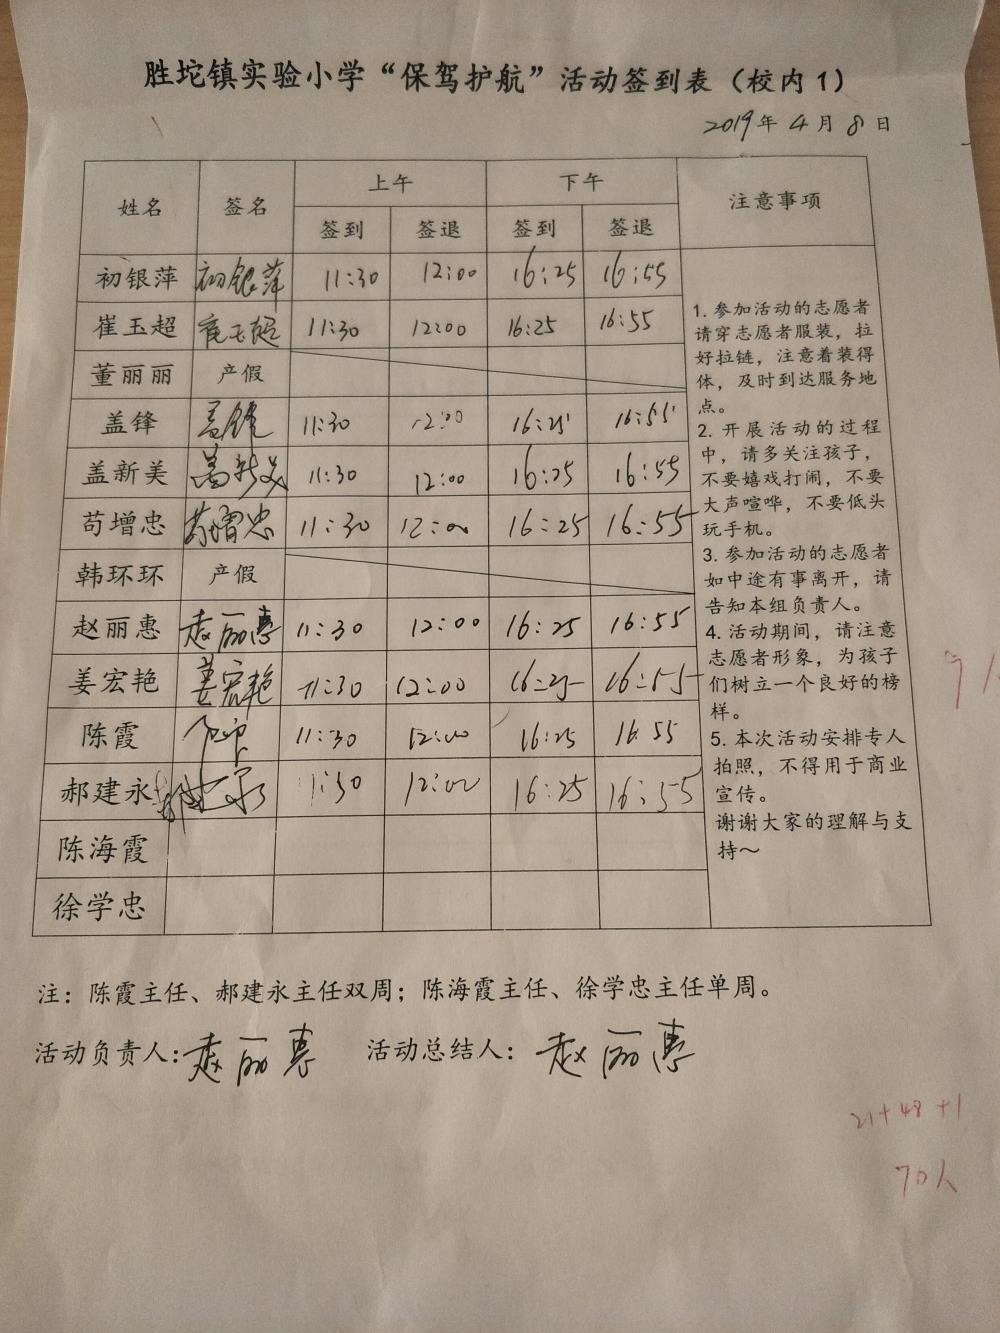 胜坨镇实验小学“保驾护航”活动签到表（校内1）
2019年4月8日
姓名 签名 上午 下午 注意事项
签到 签退 签到 签退
初银萍 初银萍 11:30 12:00 16:25 16:55
崔玉超 崔玉超 11:30 12:00 16:25 16:55
董丽丽 产假
盖锋 盖锋 11:30 12:00 16:25 16:55
盖新美 盖新美 11:30 12:00 16:25 16:55
苟增忠 苟增忠 11:30 12:00 16:25 16:55
韩环环 产假
赵丽惠 赵丽惠 11:30 12:00 16:25 16:55
姜宏艳 姜宏艳 11:30 12:00 16:25 16:55
陈霞 11:30 12:00 16:25 16:55
郝建永 郝建永 11:30 12:00 16:25 16:55
陈海霞
徐学忠
1. 参加活动的志愿者
请穿志愿者服装，拉
好拉链，注意着装得
体，及时到达服务地
点。
2. 开展活动的过程
中，请多关注孩子，
不要嬉戏打闹，不要
大声喧哗，不要低头
玩手机。
3. 参加活动的志愿者
如中途有事离开，请
告知本组负责人。
4. 活动期间，请注意
志愿者形象，为孩子
们树立一个良好的榜
样。
5. 本次活动安排专人
拍照，不得用于商业
宣传。
谢谢大家的理解与支
持～
注：陈霞主任、郝建永主任双周；陈海霞主任、徐学忠主任单周。
活动负责人：赵丽惠 活动总结人：赵丽惠
21+48+1
70人